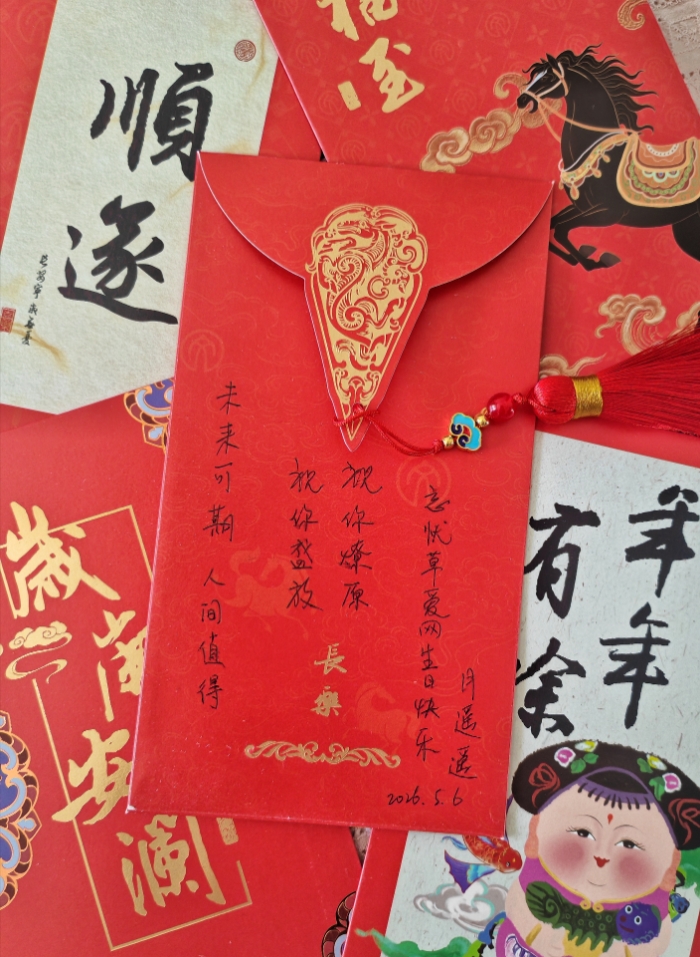 順遂
福至
忘忧草爱网生日快乐
月遥遥
2026.5.6
祝你燎原
祝你盛放
未来可期 人间值得
長樂
歲歲安瀾
年年
有余